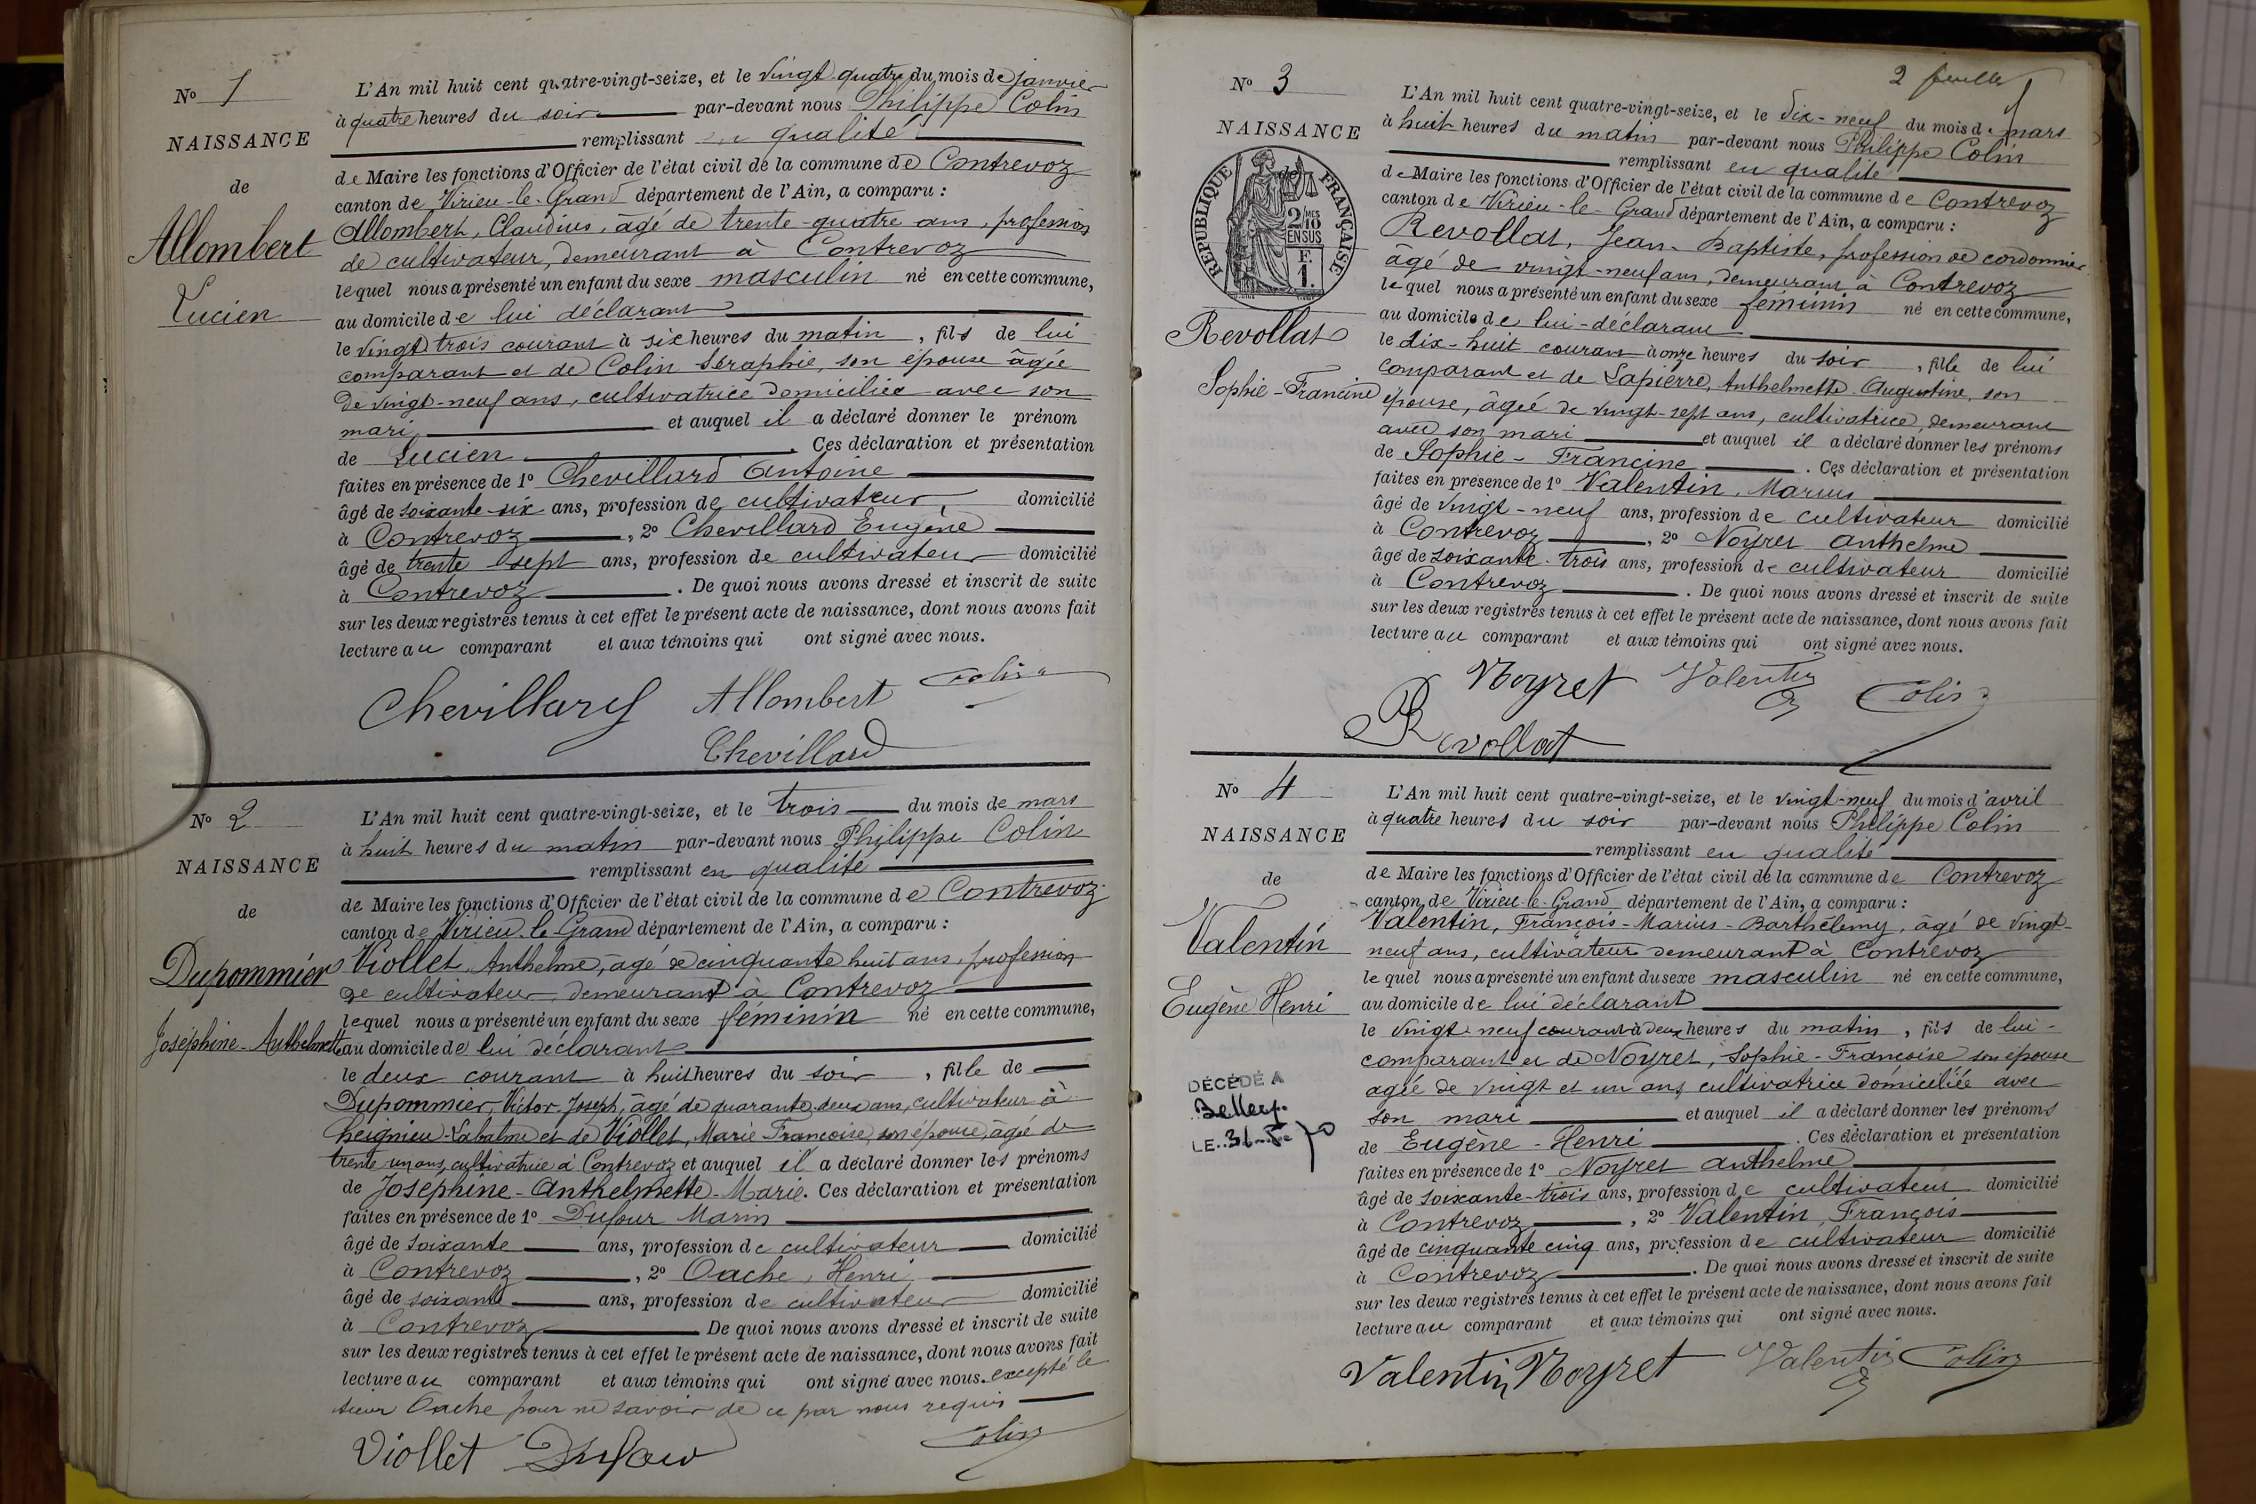 No 1
NAISSANCE
de
Allombert
Lucien
L'An mil huit cent quatre-vingt-seize, et le vingt quatre du mois de janvier
à quatre heures du soir par-devant nous Philippe Colin
remplissant en qualité
de Maire les fonctions d'Officier de l'état civil de la commune de Contrevoz
canton de Virieu-le-Grand département de l'Ain, a comparu :
Allombert, Claudius, âgé de trente-quatre ans, profession
de cultivateur, demeurant à Contrevoz
lequel nous a présenté un enfant du sexe masculin né en cette commune,
au domicile de lui déclarant
le vingt trois courant à six heures du matin, fils de lui
comparant et de Colin Séraphie, son épouse âgée
de vingt-neuf ans, cultivatrice domiciliée avec son
mari et auquel il a déclaré donner le prénom
de Lucien. Ces déclaration et présentation
faites en présence de 1o Chevillard Antoine
âgé de soixante-six ans, profession de cultivateur, domicilié
à Contrevoz, 2o Chevillard Eugène
âgé de trente sept ans, profession de cultivateur domicilié
à Contrevoz. De quoi nous avons dressé et inscrit de suite
sur les deux registres tenus à cet effet le présent acte de naissance, dont nous avons fait
lecture au comparant et aux témoins qui ont signé avec nous.
Chevillard Allombert Colin
Chevillard
No 2
NAISSANCE
de
Dupommier
Joséphine-Anthelmette
L'An mil huit cent quatre-vingt-seize, et le trois du mois de mars
à huit heures du matin par-devant nous Philippe Colin
remplissant en qualité
de Maire les fonctions d'Officier de l'état civil de la commune de Contrevoz
canton de Virieu-le-Grand département de l'Ain, a comparu :
Viollet Anthelme, âgé de cinquante huit ans, profession
de cultivateur, demeurant à Contrevoz
lequel nous a présenté un enfant du sexe féminin né en cette commune,
au domicile de lui déclarant
le deux courant à huit heures du soir, fille de
Dupommier, Victor-Joseph, âgé de quarante-deux ans, cultivateur à
Peignieu-Labalme et de Viollet, Marie Françoise son épouse, âgée de
trente un ans, cultivatrice à Contrevoz et auquel il a déclaré donner les prénoms
de Joséphine-Anthelmette-Marie. Ces déclaration et présentation
faites en présence de 1o Dufour Marin
âgé de soixante ans, profession de cultivateur domicilié
à Contrevoz, 2o Oache, Henri
âgé de soixante ans, profession de cultivateur domicilié
à Contrevoz De quoi nous avons dressé et inscrit de suite
sur les deux registres tenus à cet effet le présent acte de naissance, dont nous avons fait
lecture au comparant et aux témoins qui ont signé avec nous. excepté le
sieur Oache pour ne savoir de ce par nous requis
Viollet Dufour Colin
2 feuille
No 3
NAISSANCE
RÉPUBLIQUE FRANÇAISE
2/10 MES
EN SUS
F.
1.
Revollat
Sophie-Francine
L'An mil huit cent quatre-vingt-seize, et le Dix-neuf du mois de mars
à huit heures du matin par-devant nous Philippe Colin
remplissant en qualité
de Maire les fonctions d'Officier de l'état civil de la commune de Contrevoz
canton de Virieu-le-Grand département de l'Ain, a comparu :
Revollat, Jean-Baptiste, profession de cordonnier
âgé de vingt-neuf ans, demeurant à Contrevoz
lequel nous a présenté un enfant du sexe féminin né en cette commune,
au domicile de lui-déclarant
le dix-huit courant à onze heures du soir, fille de lui
comparant et de Lapierre, Anthelmette Augustine, son
épouse, âgée de vingt-sept ans, cultivatrice, demeurant
avec son mari et auquel il a déclaré donner les prénoms
de Sophie-Francine. Ces déclaration et présentation
faites en présence de 1o Valentin, Marius
âgé de vingt-neuf ans, profession de cultivateur domicilié
à Contrevoz, 2o Noyret Anthelme
âgé de soixante-trois ans, profession de cultivateur domicilié
à Contrevoz. De quoi nous avons dressé et inscrit de suite
sur les deux registres tenus à cet effet le présent acte de naissance, dont nous avons fait
lecture au comparant et aux témoins qui ont signé avec nous.
Noyret Valentin Colin
Revollat
No 4
NAISSANCE
de
Valentin
Eugène Henri
DÉCÉDÉ A
Belley.
LE
L'An mil huit cent quatre-vingt-seize, et le vingt-neuf du mois d'avril
à quatre heures du soir par-devant nous Philippe Colin
remplissant en qualité
de Maire les fonctions d'Officier de l'état civil de la commune de Contrevoz
canton de Virieu-le-Grand département de l'Ain, a comparu :
Valentin, François-Marius-Barthélemy, âgé de vingt-
neuf ans, cultivateur demeurant à Contrevoz
lequel nous a présenté un enfant du sexe masculin né en cette commune,
au domicile de lui déclarant
le vingt-neuf courant à deux heures du matin, fils de lui-
comparant et de Noyret, Sophie-Françoise son épouse
agée de vingt et un ans, cultivatrice domiciliée avec
son mari et auquel il a déclaré donner les prénoms
de Eugène-Henri. Ces déclaration et présentation
faites en présence de 1o Noyret Anthelme
âgé de soixante-trois ans, profession de cultivateur domicilié
à Contrevoz, 2o Valentin, François
âgé de cinquante cinq ans, profession de cultivateur domicilié
à Contrevoz. De quoi nous avons dressé et inscrit de suite
sur les deux registres tenus à cet effet le présent acte de naissance, dont nous avons fait
lecture au comparant et aux témoins qui ont signé avec nous.
Valentin Noyret Valentin Colin